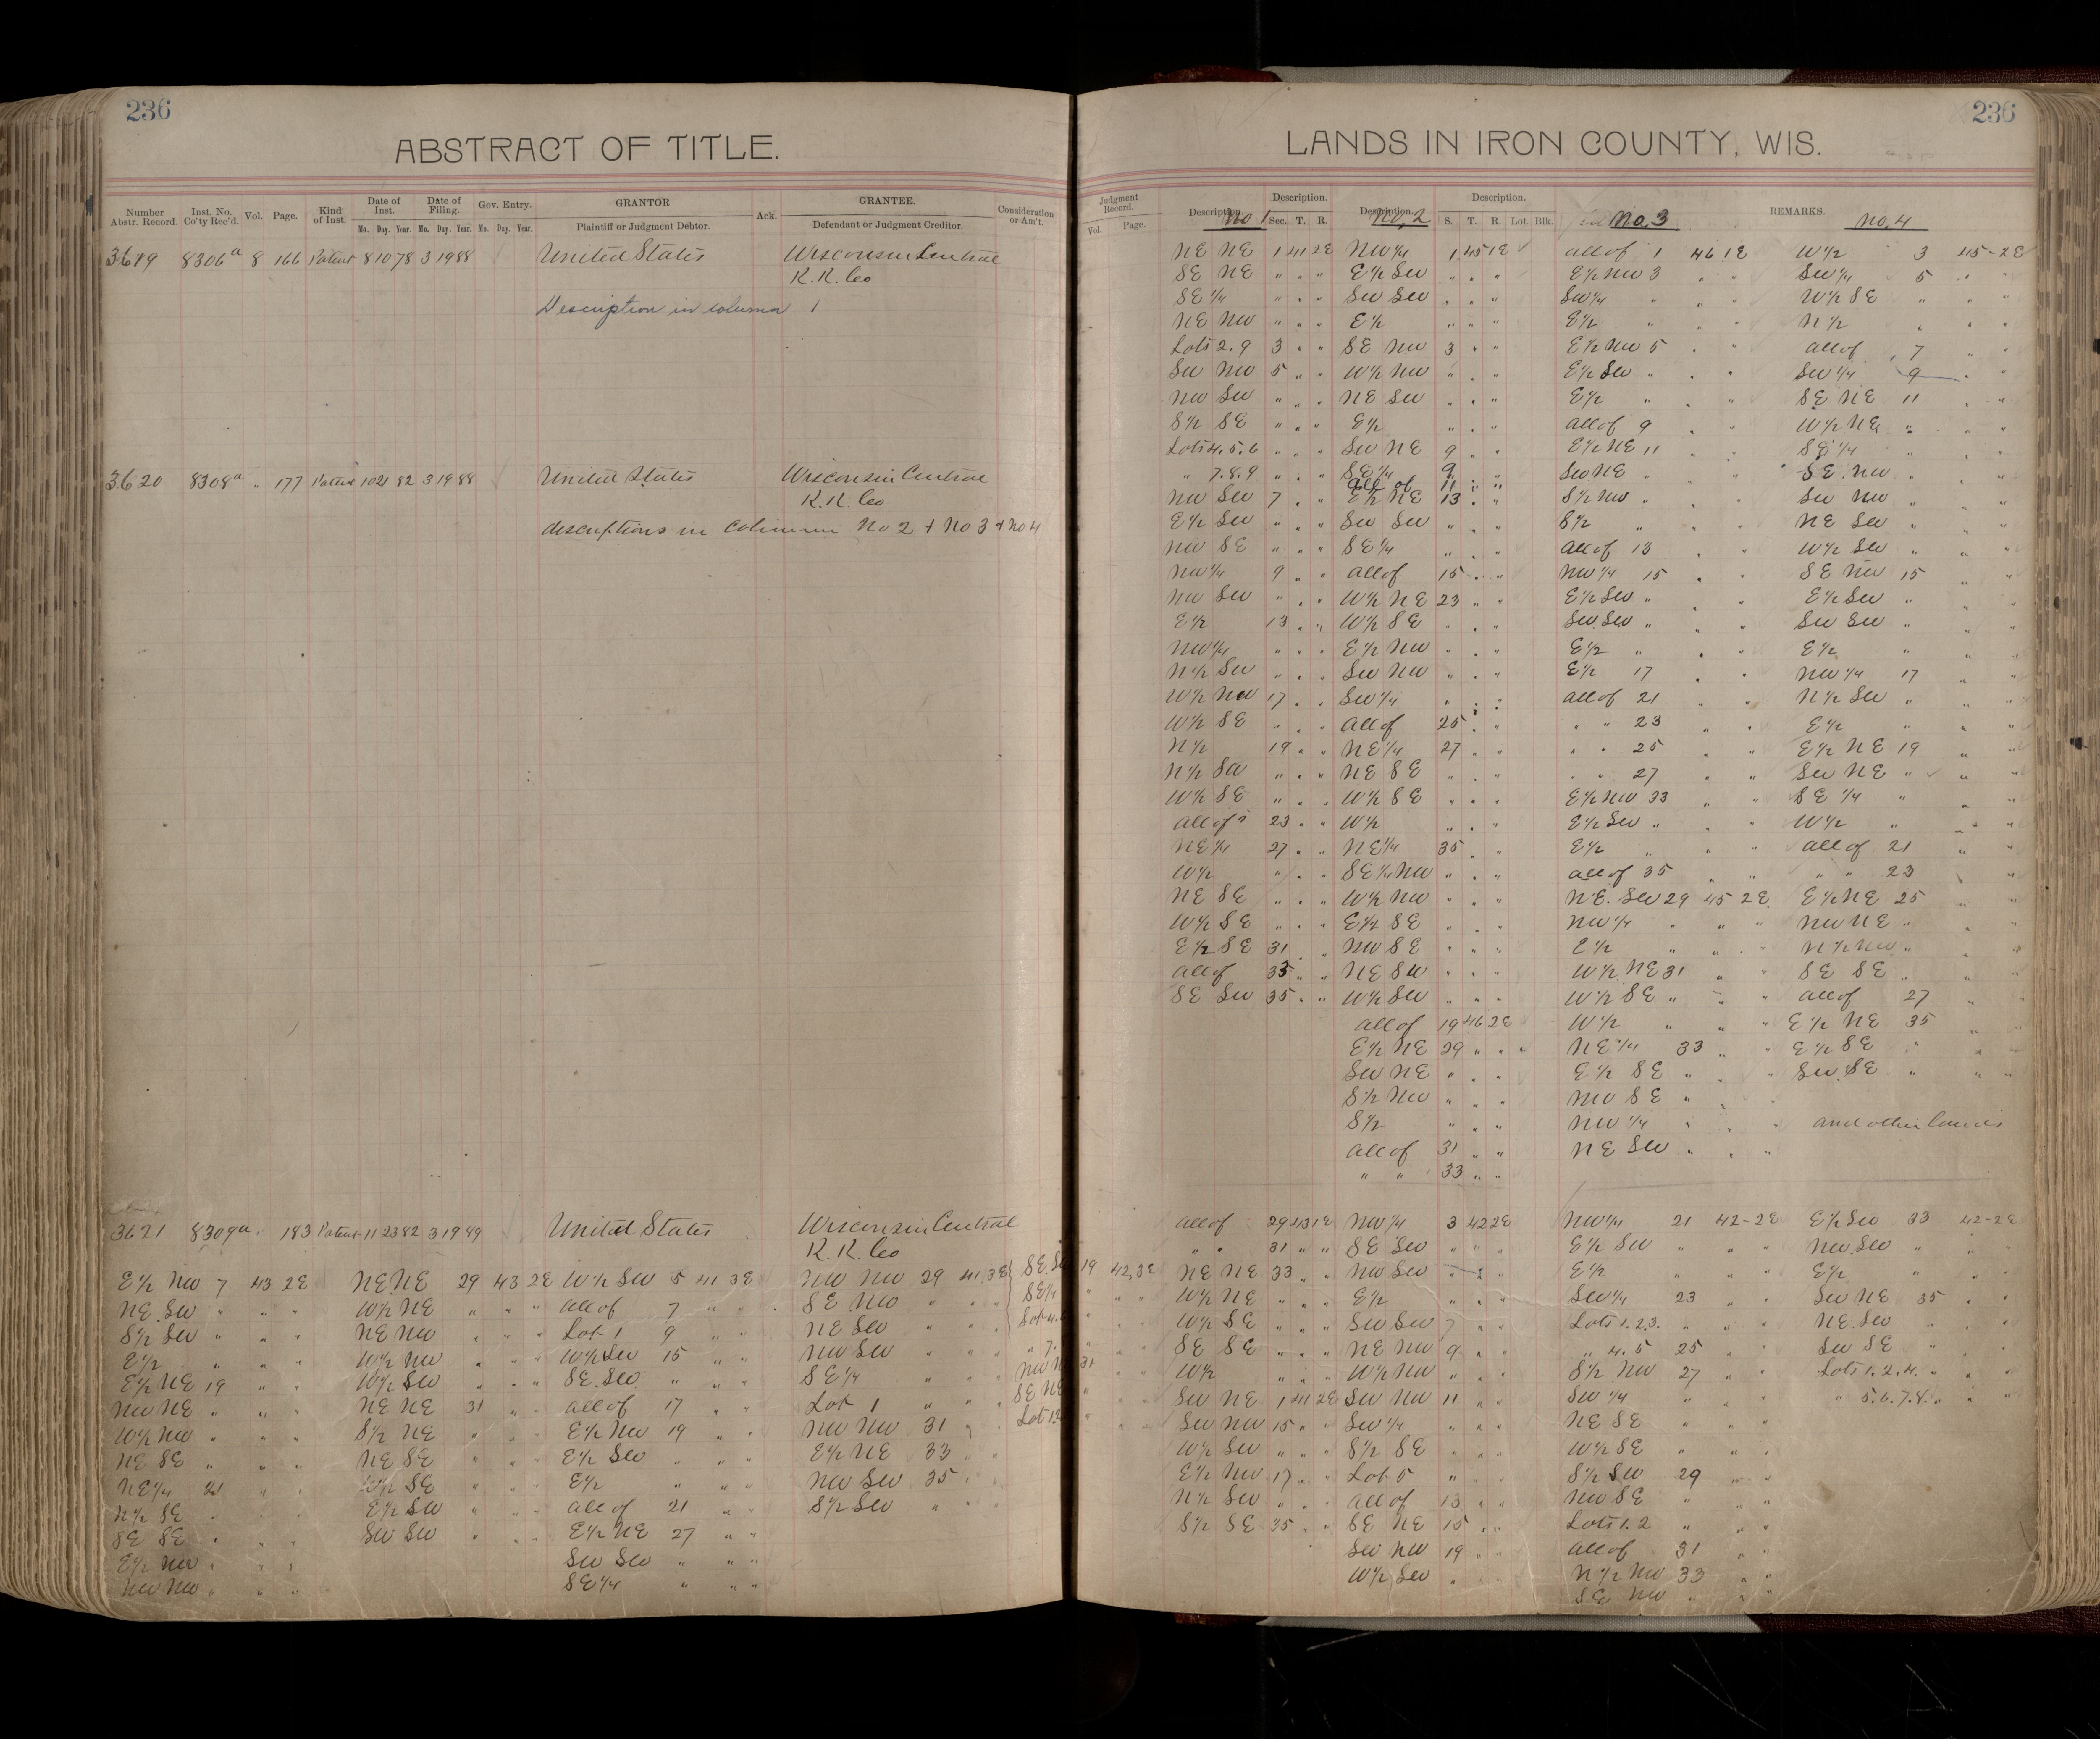 236
ABSTRACT OF TITLE.
Number Abstr. Record. Inst. No. Co'ty Rec'd. Vol. Page. Kind of Inst. Date of Inst. Date of Filing. Gov. Entry. GRANTOR Ack. GRANTEE. Consideration or Am't.
Mo. Day. Year. Mo. Day. Year. Mo. Day. Year. Plaintiff or Judgment Debtor. Defendant or Judgment Creditor.
3619 8306a 8 166 Patent 8 10 78 3 19 88 United States Wisconsin Central
R.R. Co
Description in column 1
3620 8308a " 177 Patent 10 21 82 3 19 88 United States Wisconsin Central
R.R. Co
descriptions in Column No 2 + No 3 + No 4
3621 8309a " 183 Patent 11 23 82 3 19 89 United States Wisconsin Central
R.R. Co
E½ NW 7 43 2E NE NE 29 43 2E W½ SW 5 41 3E NW NW 29 41 3E SE 19 42 3E
NE SW " " " W½ NE " " " all of 7 " " SE NW " " " SE¼ " " "
S½ SW " " " NE NW " " " Lot 1 9 " " NE SW " " "
E½ " " " W½ NW " " " W½ SW 15 " " NW SW " " "
E½ NE 19 " " W½ SW " " " SE SW " " " SE¼ " " " 31
NW NE " " " NE NE 31 " " all of 17 " " Lot 1 " " " SE NE
W½ NW " " " S½ NE " " " E½ NW 19 " " NW NW 31 " "
NE SE " " " NE SE " " " E½ SW " " " E½ NE 33 " "
NE¼ 21 " " W½ SE " " " E½ " " " NW SW 35 " "
N½ SE " " " E½ SW " " " all of 21 " " S½ SW " " "
SE SE " " " SW SW " " " E½ NE 27 " "
E½ NW " " " SW SW " " "
NW NW " " " SE¼ " " "
236
LANDS IN IRON COUNTY, WIS.
Judgment Record. Description. Description. REMARKS.
Vol. Page. Description. No 1 Sec. T. R. Description. No. 2 S. T. R. Lot. Blk. No. 3 No. 4
NE NE 1 41 2E NW¼ 1 45 1E all of 1 46 1E W½ 3 45-2E
SE NE " " " E½ SW " " " E½ NW 3 " " SW¼ 5 " "
SE¼ " " " SW SW " " " SW¼ " " " W½ SE " " "
NE NW " " " E½ " " " E½ " " " N½ " " "
Lots 2.9 3 " " SE NW 3 " " E½ NW 5 " " all of 7 " "
SW NW 5 " " W½ NW " " " E½ SW " " " SW¼ 9 " "
NW SW " " " NE SW " " " E½ " " " SE NE 11 " "
S½ SE " " " E½ " " " all of 9 " " W½ NE " " "
Lots 4.5.6 " " " SW NE 9 " " E½ NE 11 " " SE¼ " " "
" 7.8.9 " " " SE¼ 9 " " SW NE " " " SE NW " " "
all of 11 " "
NW SW 7 " " E½ NE 13 " " S½ NW " " " SW NW " " "
E½ SW " " " SW SW " " " S½ " " " NE SW " " "
NW SE " " " SE¼ " " " all of 13 " " W½ SW " " "
NW¼ 9 " " all of 15 " " NW¼ 15 " " SE NW 15 " "
NW SW " " " W½ NE 23 " " E½ SW " " " E½ SW " " "
E½ 13 " " W½ SE " " " SW SW " " " SW SW " " "
NW¼ " " " E½ NW " " " E½ " " " E½ " " "
N½ SW " " " SW NW " " " E½ 17 " " NW¼ 17 " "
W½ NW 17 " " SW¼ " " " all of 21 " " N½ SW " " "
W½ SE " " " all of 25 " " " " 23 " " E½ " " "
N½ 19 " " NE¼ 27 " " " " 25 " " E½ NE 19 " "
N½ SW " " " NE SE " " " " " 27 " " SW NE " " "
W½ SE " " " W½ SE " " " E½ NW 33 " " SE ¼ " " "
all of 23 " " W½ " " " E½ SW " " " W½ " " "
NE¼ 27 " " NE¼ 35 " " E½ " " " all of 21 " "
W½ " " " SE¼ NW " " " all of 35 " " " " 23 " "
NE SE " " " W½ NW " " " NE SW 29 45 2E E½ NE 25 " "
W½ SE " " " E½ SE " " " NW¼ " " " NW NE " " "
E½ SE 31 " " NW SE " " " E½ " " " N½ NW " " "
all of 33 " " NE SW " " " W½ NE 31 " " SE SE " " "
SE SW 35 " " W½ SW " " " W½ SE " " " all of 27 " "
all of 19 46 2E W½ " " " E½ NE 35 " "
E½ NE 29 " " NE¼ 33 " " E½ SE " " "
SW NE " " " E½ SE " " " SW SE " " "
S½ NW " " " NW SE " " "
S½ " " " NW ¼ " " " and other lands
all of 31 " " NE SW " " "
" " 33 " "
all of 29 43 1E NW¼ 3 42 2E NW¼ 21 42-2E E½ SW 33 42-2E
" " 31 " " SE SW " " " E½ SW " " " NW SW " " "
NE NE 33 " " NW SW " " " E½ " " " E½ " " "
W½ NE " " " E½ " " " SW¼ 23 " " SW NE 35 " "
W½ SE " " " SW SW 7 " " Lots 1.2.3. " " " NE SW " " "
SE SE " " " NE NW 9 " " " 4.5 25 " " SW SE " " "
W½ " " " W½ NW " " " S½ NW 27 " " Lots 1.2.4. " " "
SW NE 1 41 2E SW NW 11 " " SW ¼ " " " " 5.6.7.8. " "
SW NW 15 " " SW¼ " " " NE SE " " "
W½ SW " " " S½ SE " " " W½ SE " " "
E½ NW 17 " " Lot 5 " " " S½ SW 29 " "
N½ SW " " " all of 13 " " NW SE " " "
S½ SE 35 " " SE NE 15 " " Lots 1.2 " " "
SW NW 19 " " all of 31 " "
W½ SW " " " N½ NW 33 " "
SE NW " " "